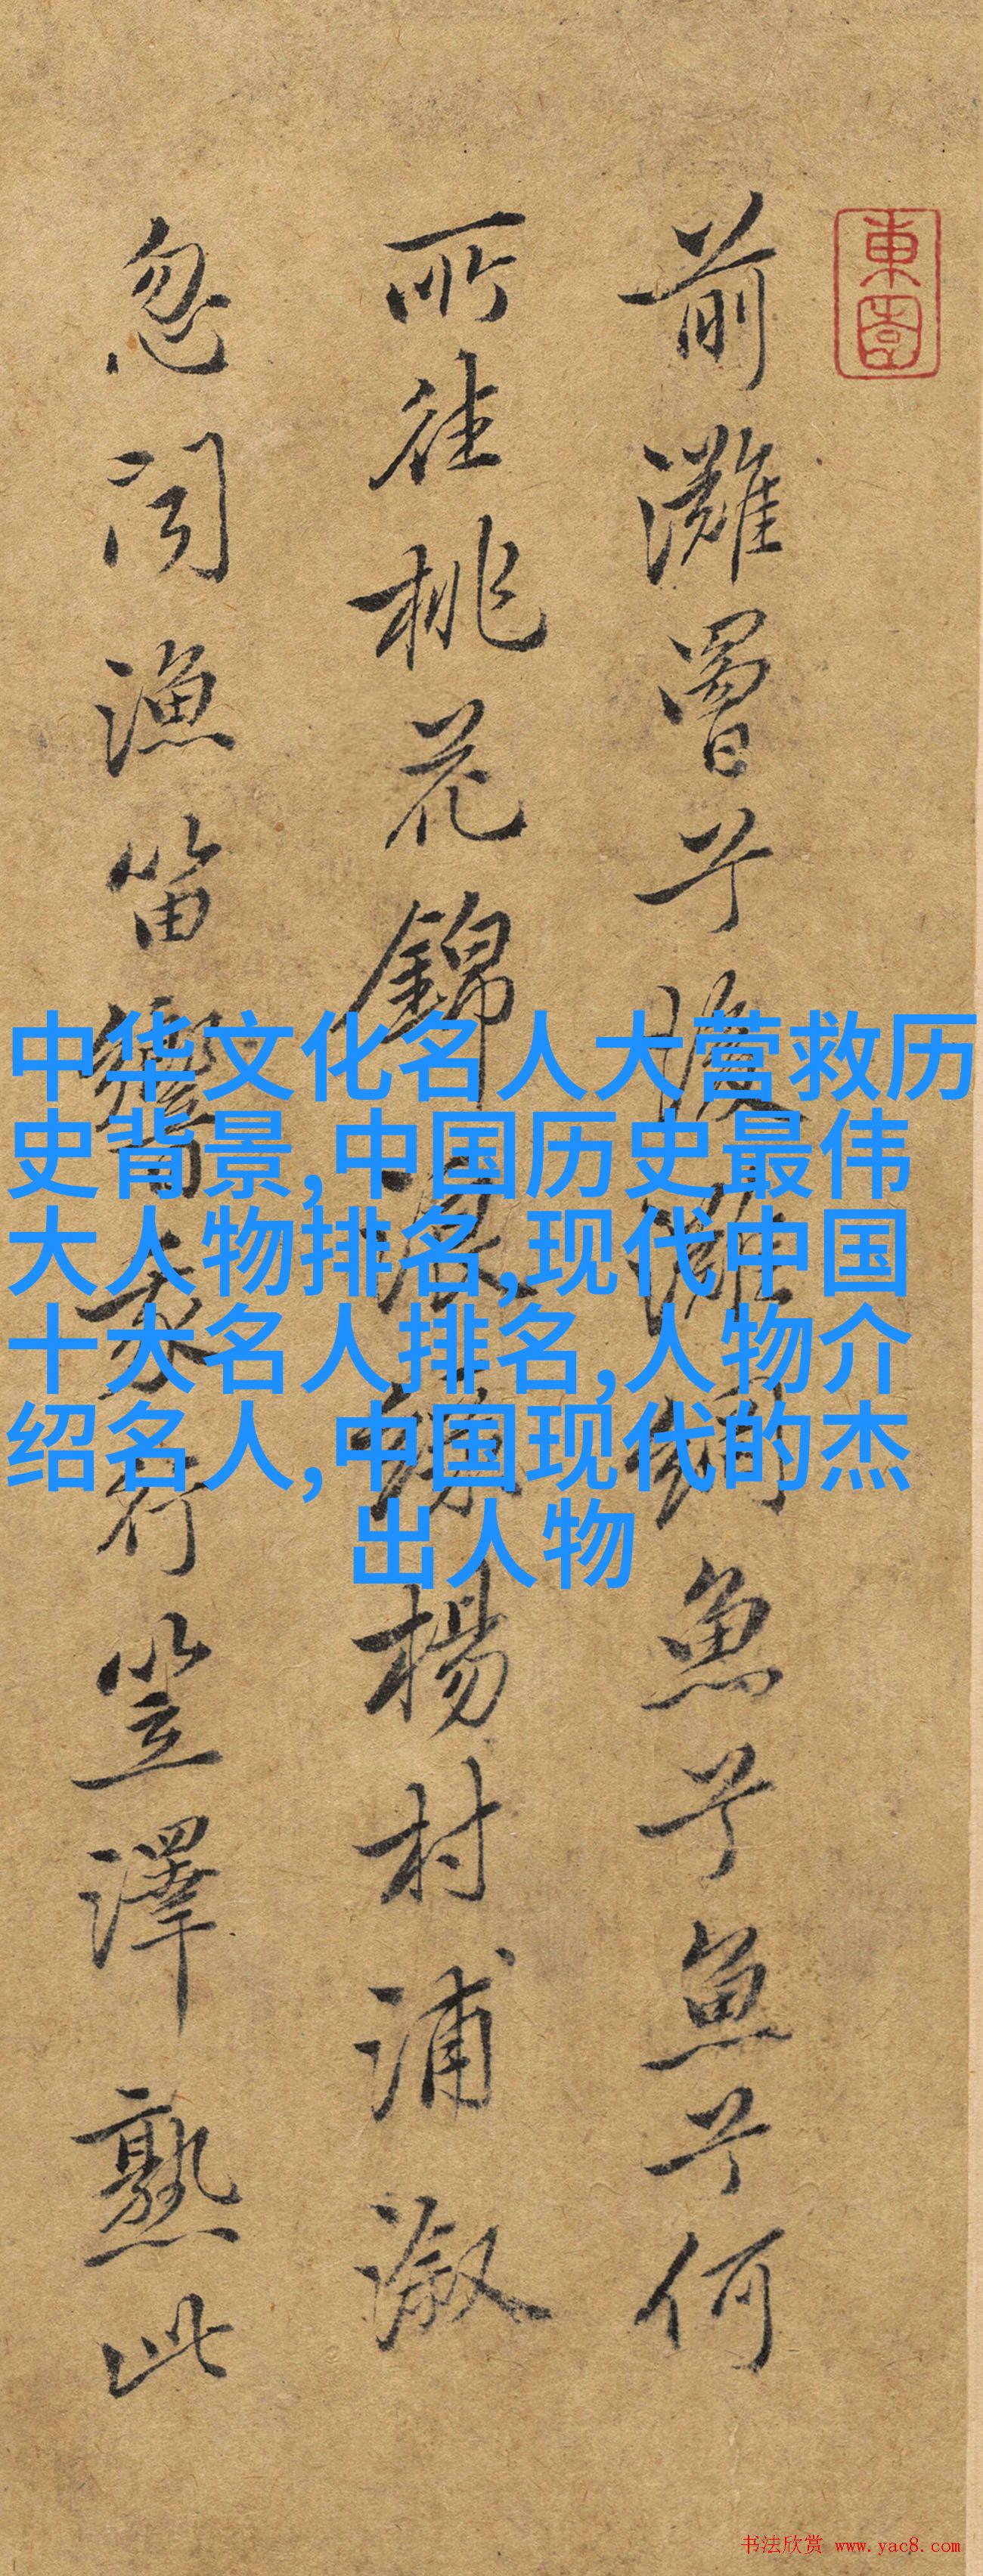 東園
前灘罾兮後灘網魚兮魚兮何
所往桃花錦浪綠楊村浦漵
忽聞漁笛響行笠澤熟此
中华文化名人大营救历
史背景,中国历史最伟
大人物排名,现代中国
十大名人排名,人物介
绍名人,中国现代的杰
出人物
书法欣赏 www.yac8.com